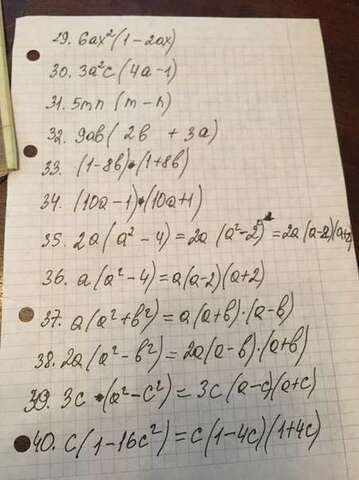 29. 6ax²(1-2ax)
30. 3a²c(4a-1)
31. 5mn(m-n)
32. 9ab(2b + 3a)
33. (1-8b)•(1+8b)
34. (10a-1)•(10a+1)
35. 2a(a²-4)=2a(a²-2²)=2a(a-2)(a+2)
36. a(a²-4)=a(a-2)(a+2)
37. a(a²+b²)=a(a+b)·(a-b)
38. 2a(a²-b²)=2a(a-b)·(a+b)
39. 3c•(a²-c²)=3c(a-c)(a+c)
40. c(1-16c²)=c(1-4c)(1+4c)